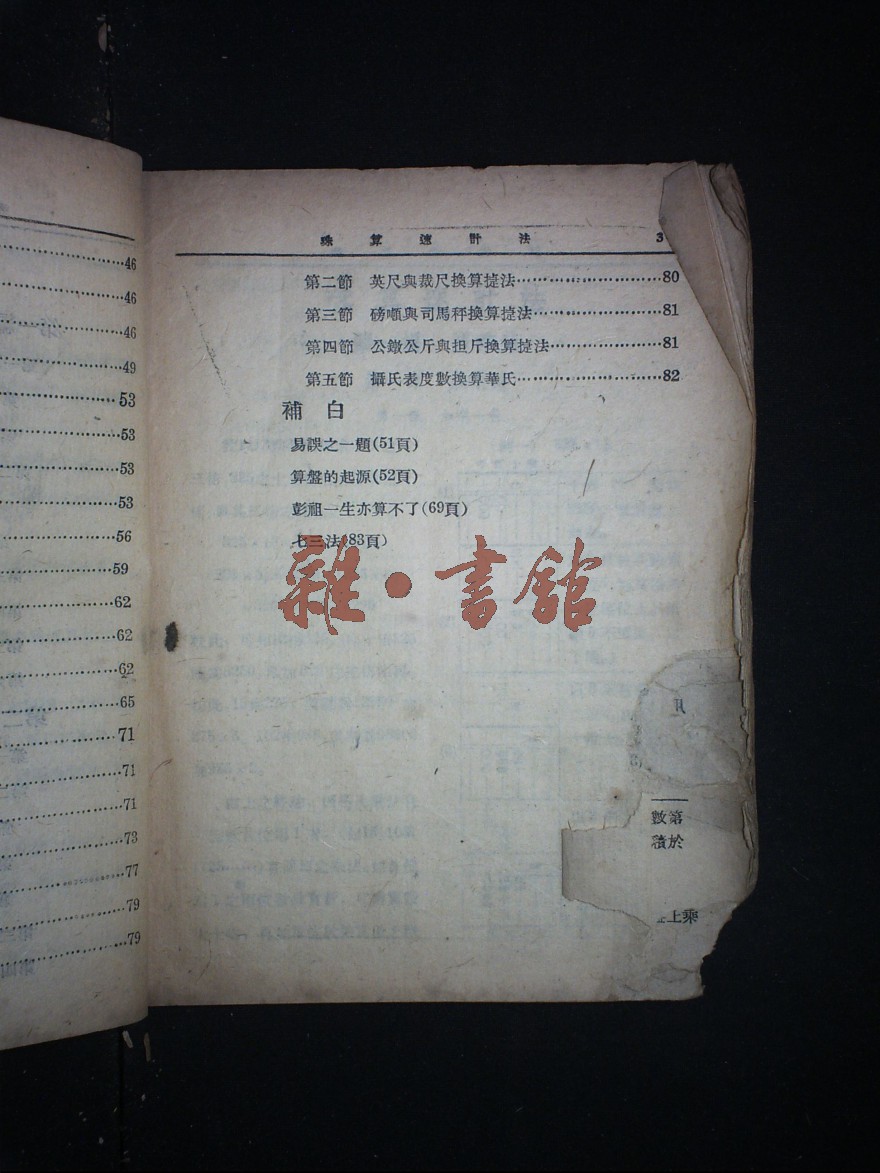 46
46
46
49
53
53
53
53
56
59
62
62
62
65
71
71
71
73
77
79
79
珠算速計法 3
第二節 英尺與裁尺換算㨗法 80
第三節 磅噸與司馬秤換算㨗法 81
第四節 公鐓公斤與担斤換算㨗法 81
第五節 攝氏表度數換算華氏 82
補白
易誤之一題(51頁)
算盤的起源(52頁)
彭祖一生亦算不了(69頁)
七三法(83頁)
雜·書館
數第
積於
上乘